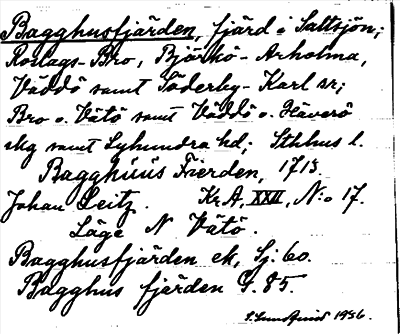 Bagghusfjärden, fjärd i Saltsjön;
Roslags-Bro, Björkö-Arholma,
Väddö samt Söderby-Karl sr;
Bro o. Vätö samt Väddö o. Häverö
skg samt Lyhundra hd; Sthlms l.
Bagghúús Fierden, 1713.
Johan Leitz. Kr.A, XXII, N:o 17.
Läge N Vätö.
Bagghusfjärden ek, Sj. 60.
Bagghus fjärden G. 85.
S. Lundquist 1936.